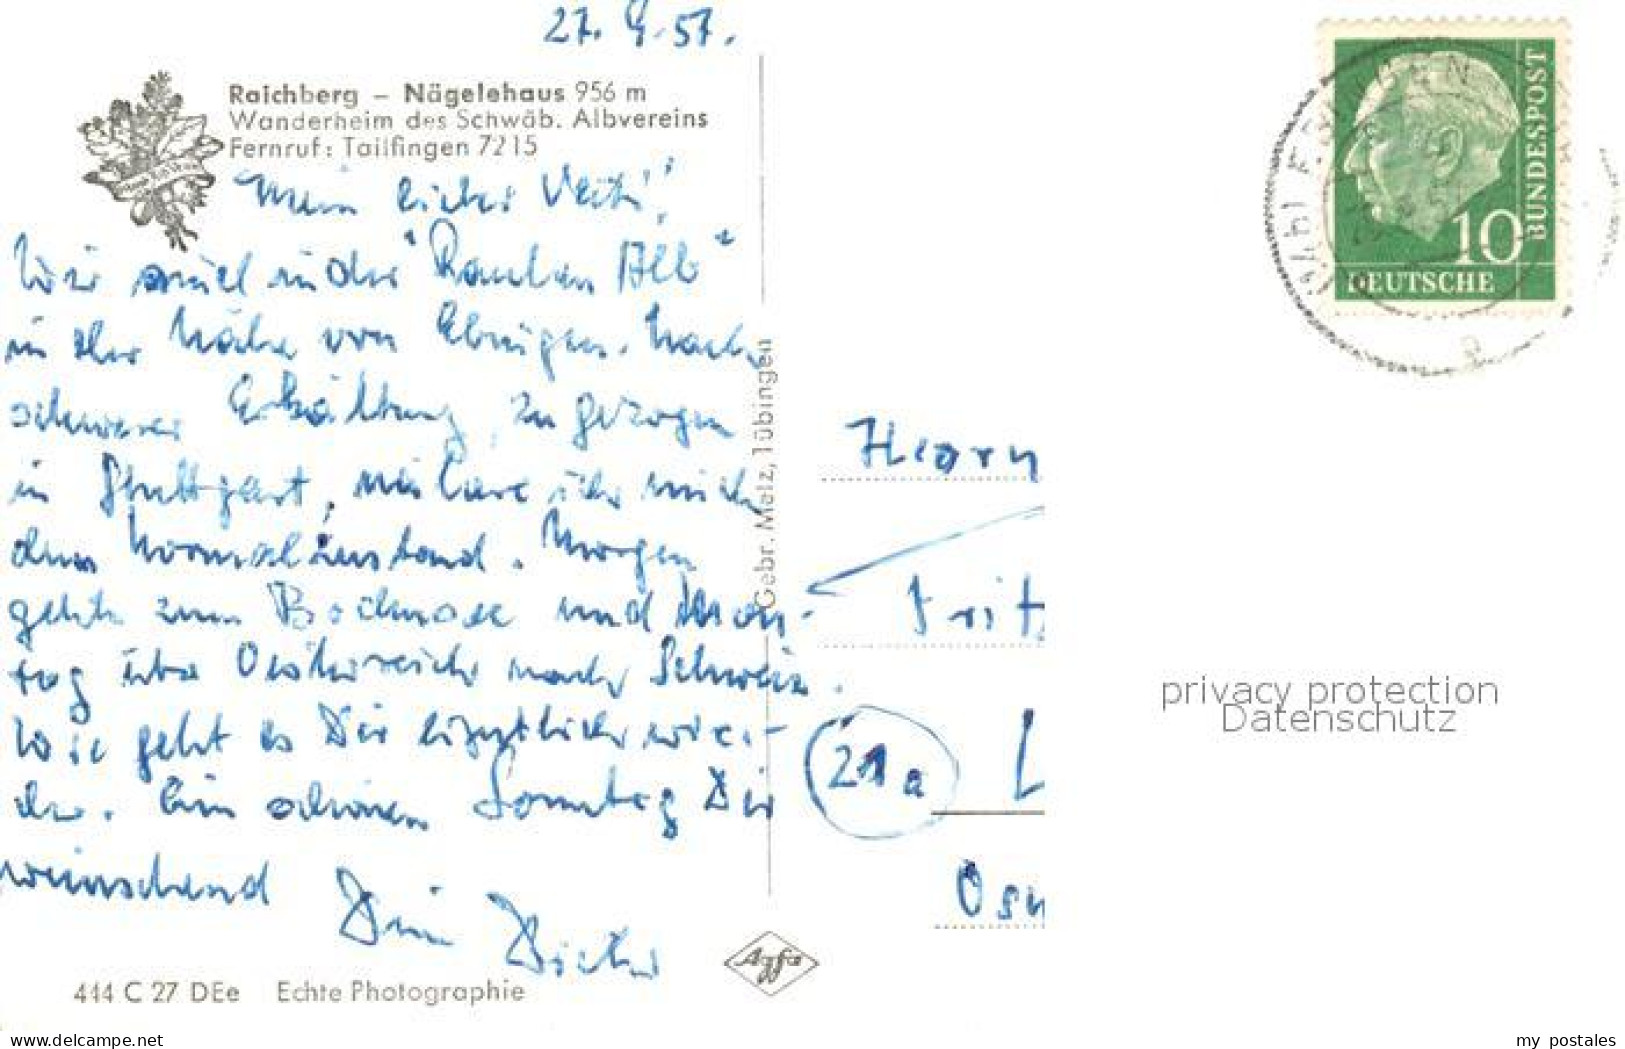 27. 9. 57.
Raichberg – Nägelehaus 956 m
Wanderheim des Schwäb. Albvereins
Fernruf: Tailfingen 7215
Mein lieber
Wir sind in der "Rauhen Alb"
in der Nähe von Ebingen. Nach
schwerer Erkältung, zugezogen
in Stuttgart, ich mich
dem Normalzustand. Morgen
gehts zum Bodensee und Mon-
tag über Oesterreich nach Schweiz.
Wie geht es Dir eigentlich wie-
der. Ein schönen Sonntag Dir
wünschend Dein Dieter
444 C 27 DEe Echte Photographie
Gebr. Metz, Tübingen
Agfa
DEUTSCHE
BUNDESPOST
10
Herrn
Frit
21a
L
Osn
privacy protection
Datenschutz
www.delcampe.net
my_postales